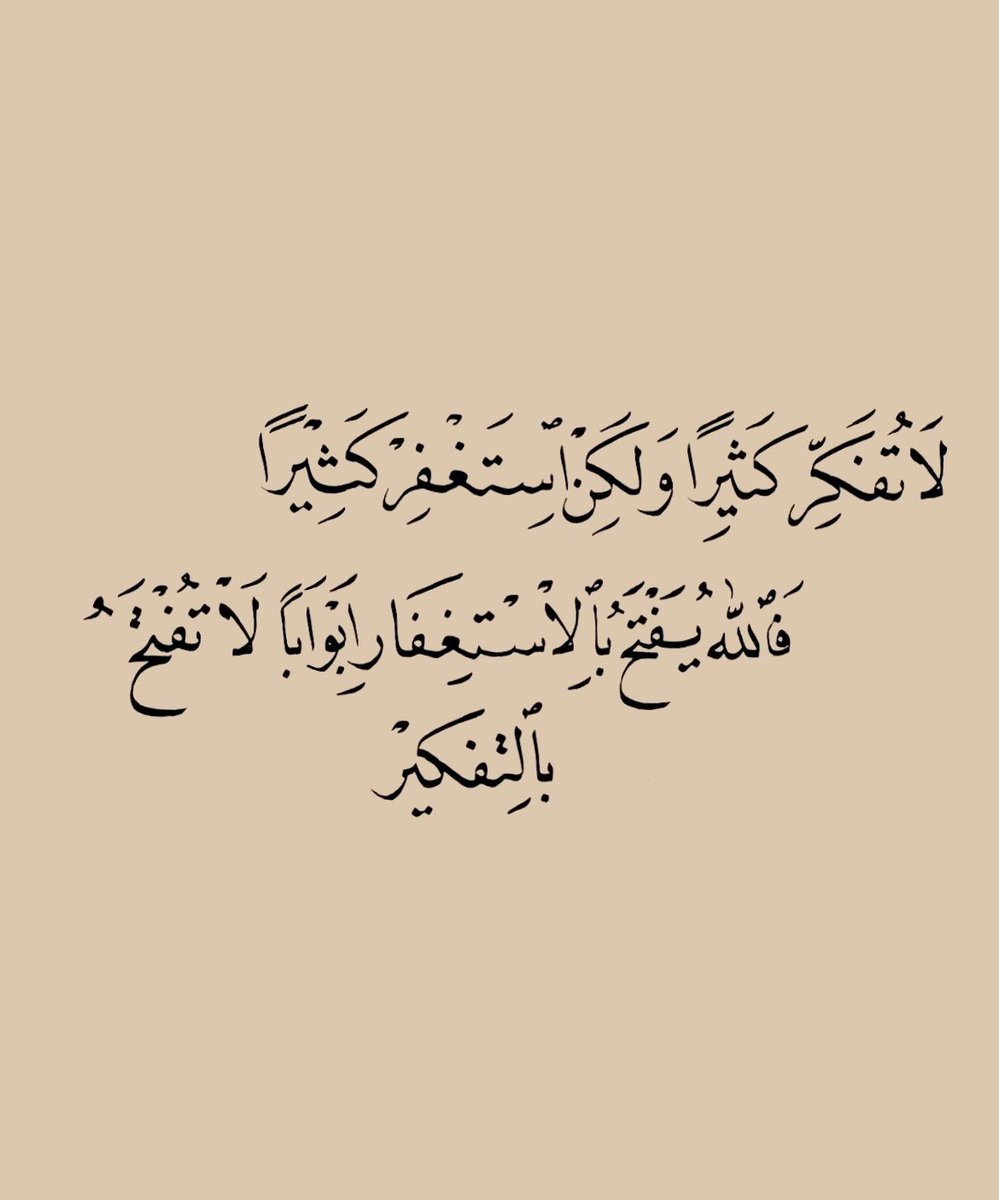 لَا تُفَكِّر كَثيِرًا وَلَكِنْ ٱسِتَغْفِرْ كَثِيْرًا
فَٱللّٰه يُفَتَحُ بُٱلِاْسْتِغِفَار ابَوَابَاً لَاْ تُفْتَحَُ
بٱلِتفكيرْ